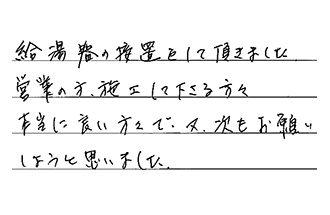 給湯器の接置をして頂きました.
営業の方、施工して下さる方々
本当に良い方々で、又、次もお願い
しようと思いました.